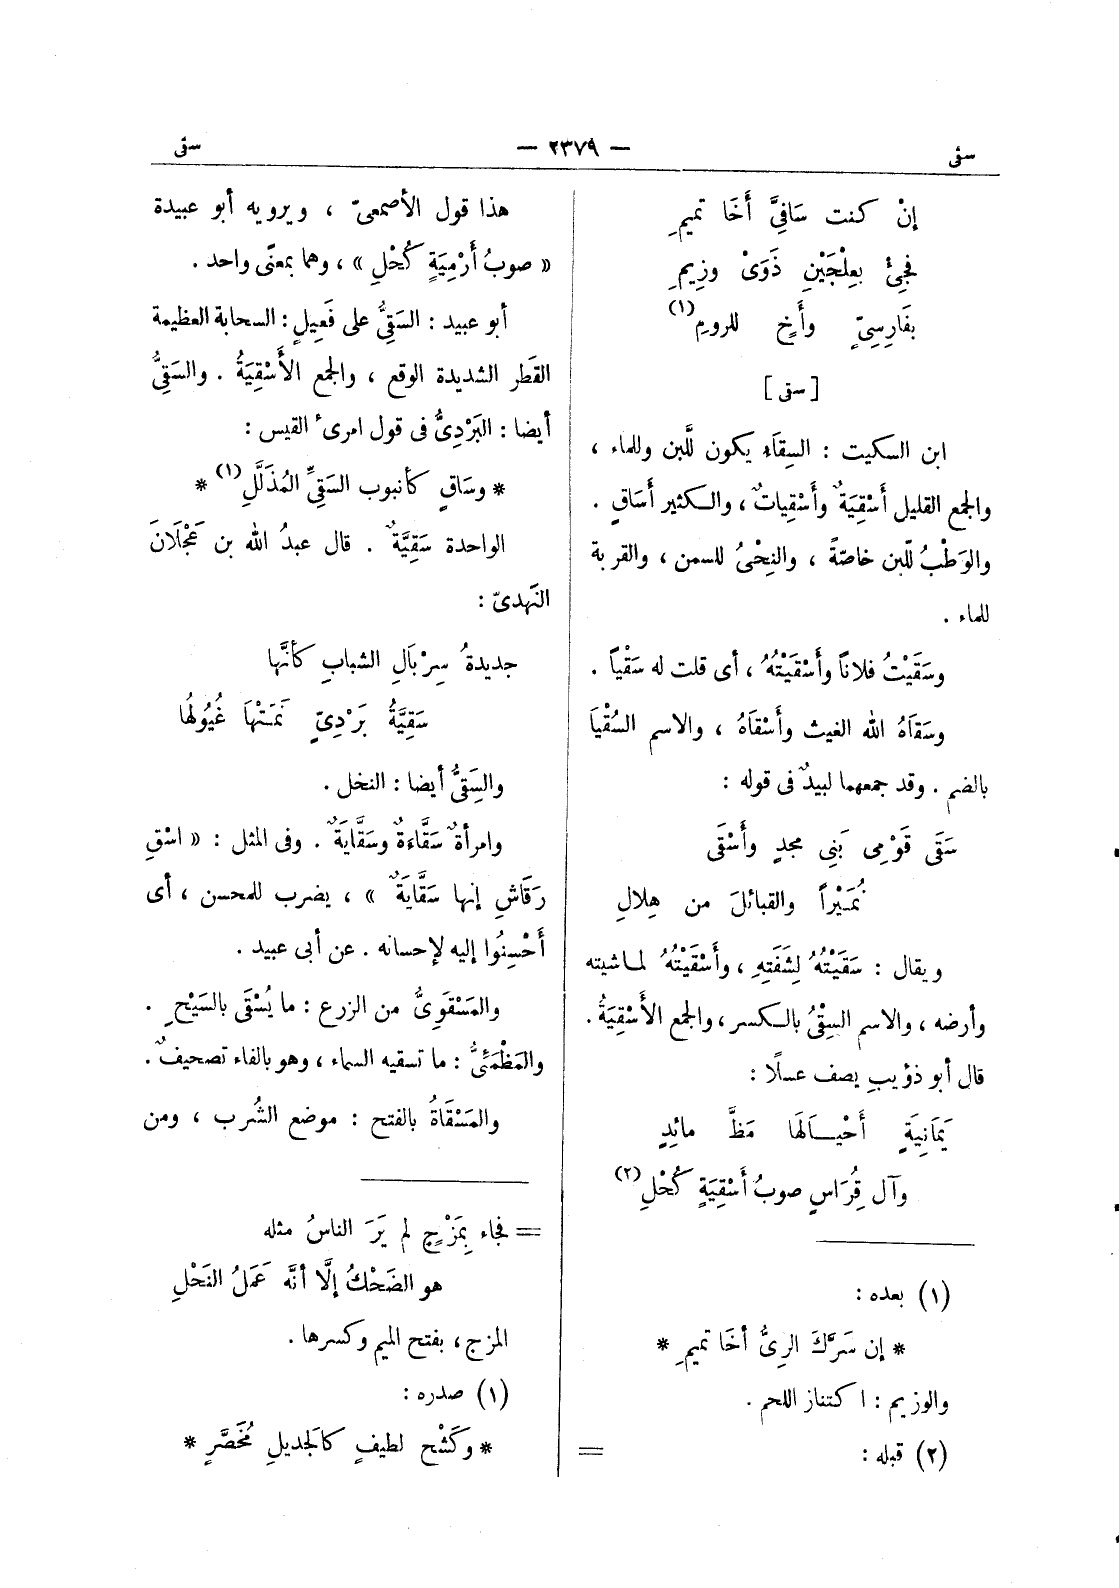 سقى
— ٢٣٧٩ —
سقى
إنْ كنت سَاقِيَّ أَخَا تميمِ
فَجِئْ بعِلْجَيْنِ ذَوَىْ وزِيمِ
بفَارِسِىٍّ وأَخٍ للرومِ (١)
[ سقى ]
ابن السكيت : السِقَاء يكون للّبن وللماء ،
والجمع القليل أَسْقِيَةٌ وأَسْقِياتٌ ، والكثير أَسَاقٍ .
والوَطْبُ للّبن خاصّةً ، والنِحْىُ للسمن ، والقربة
للماء .
وسَقَيْتُ فلاناً وأَسْقَيْتُهُ ، أى قلت له سَقْياً .
وسَقَاهُ الله الغيث وأَسْقَاهُ ، والاسم السُقْيَا
بالضم . وقد جمعهما لبيدٌ فى قوله :
سَقَى قَوْمِى بَنِى مجدٍ وأَسْقَى
نُمَيْراً والقبائلَ من هِلالِ
ويقال : سَقَيْتُهُ لِشَفَتِهِ ، وأَسْقَيْتُهُ لماشيته
وأرضه ، والاسم السِقْىُ بالكسر ، والجمع الأَسْقِيَةُ .
قال أبو ذؤيبٍ يصف عسلًا :
يَمَانِيَةٍ أَحْيَالَهَا مَظَّ مائِدٍ
وآل قُِرَاسٍ صوبُ أَسْقِيَةٍ كُحْلِ (٢)
(١) بعده :
* إن سَرَّكَ الرِىُّ أخَا تميمِ *
والوزيم : اكتناز اللحم .
(٢) قبله :
=
هذا قول الأصمعىّ ، ويرويه أبو عبيدة
« صوبُ أَرْمِيَةٍ كُحْلِ » ، وهما بمعنًى واحد .
أبو عبيد : السَقِىُّ على فَعِيلٍ : السحابة العظيمة
القَطر الشديدة الوقع ، والجمع الأَسْقِيَةُ . والسَقِىُّ
أيضا : البَرْدِىُّ فى قول امرئ القيس :
* وسَاقٍ كأنبوب السَقِىِّ المُذَلَّلِ (١) *
الواحدة سَقِيَّةٌ . قال عبدُ الله بن عَجْلَانَ
النَهدىّ :
جديدةُ سِرْبَالِ الشبابِ كأنَّها
سَقِيَّةُ بَرْدِىٍّ نَمَتْهَا غُيُولُها
والسَِقىُّ أيضا : النخل .
وامرأةٌ سَقَّاءَةٌ وسَقَّايَةٌ . وفى المثل : « اسْقِ
رَقَاشِ إنها سَقَّايَةٌ » ، يضرب للمحسن ، أى
أَحْسِنُوا إليه لإحسانه . عن أبى عبيد .
والمَسْقَوِىُّ من الزرع : ما يُسْقَى بالسَيْحِ .
والمَظْمَئِىُّ : ما تسقيه السماء ، وهو بالفاء تصحيفٌ .
والمَسْقَاةُ بالفتح : موضع الشُرب ، ومن
= فجاء بِمَزْجٍ لم يَرَ الناسُ مثله
هو الضَحْكُ إلَّا أنَّه عَمَلُ النَحْلِ
المزج ، بفتح الميم وكسرها .
(١) صدره :
* وكَشْح لطيفٍ كالجديلِ مُخَصَّرٍ *